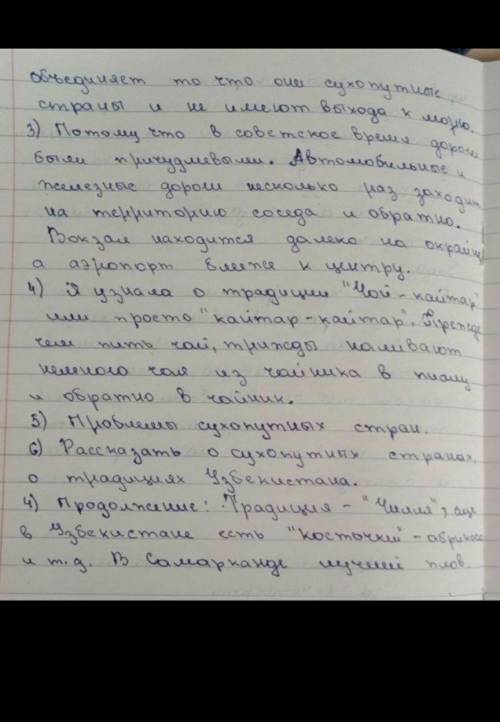 объединяет то что они сухопутные
страны и не имеют выхода к морю.
3) Потому что в советское время дороги
были причудливыми. Автомобильные и
железные дороги несколько раз заходит
на территорию соседа и обратно.
Вокзал находится далеко на окраине
а аэропорт ближе к центру.
4) Я узнала о традиции "Чой-кайтар"
или просто "кайтар-кайтар". Прежде
чем пить чай, трижды наливают
немного чая из чайника в пиалу
и обратно в чайник.
5) Проблемы сухопутных стран.
6) Рассказать о сухопутных странах,
о традициях Узбекистана.
4) Продолжение: Традиция - "Чилля", еще
в Узбекистане есть "косточки" - абрикос
и т.д. В Самарканде лучший плов.